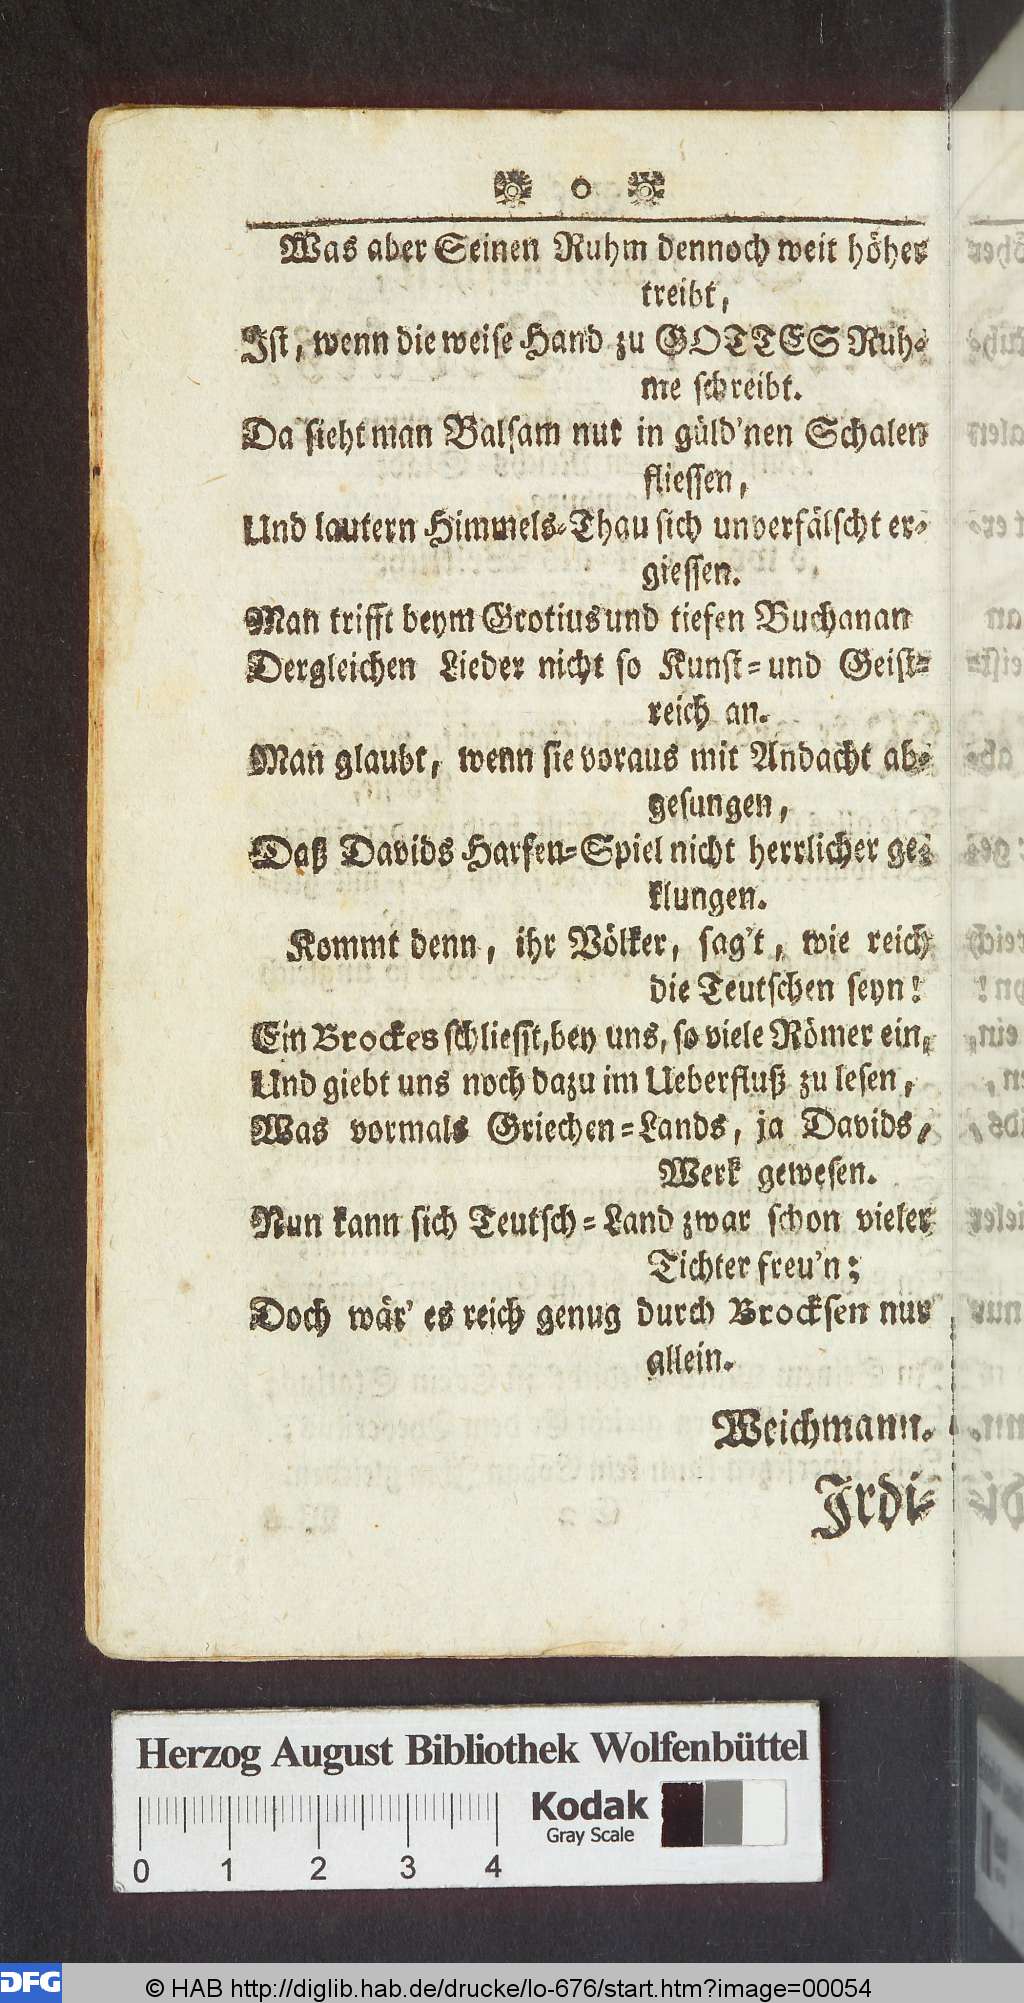 o
Was aber Seinen Ruhm dennoch weit höher
treibt,
Ist, wenn die weise Hand zu GOTTES Ruh-
me schreibt.
Da sieht man Balsam nur in güld'nen Schalen
fliessen,
Und lautern Himmels-Thau sich unverfälscht er-
giessen.
Man trifft beym Grotius und tiefen Buchanan
Dergleichen Lieder nicht so Kunst- und Geist-
reich an.
Man glaubt, wenn sie voraus mit Andacht ab-
gesungen,
Daß Davids Harfen-Spiel nicht herrlicher ge-
klungen.
Kommt denn, ihr Völker, sag't, wie reich
die Teutschen seyn!
Ein Brockes schliesst, bey uns, so viele Römer ein,
Und giebt uns noch dazu im Ueberfluß zu lesen,
Was vormals Griechen-Lands, ja Davids,
Werk gewesen.
Nun kann sich Teutsch-Land zwar schon vieler
Tichter freu'n;
Doch wär' es reich genug durch Brocksen nur
allein.
Weichmann.
Irdi-
Herzog August Bibliothek Wolfenbüttel
Kodak
Gray Scale
0 1 2 3 4
DFG
© HAB http://diglib.hab.de/drucke/lo-676/start.htm?image=00054